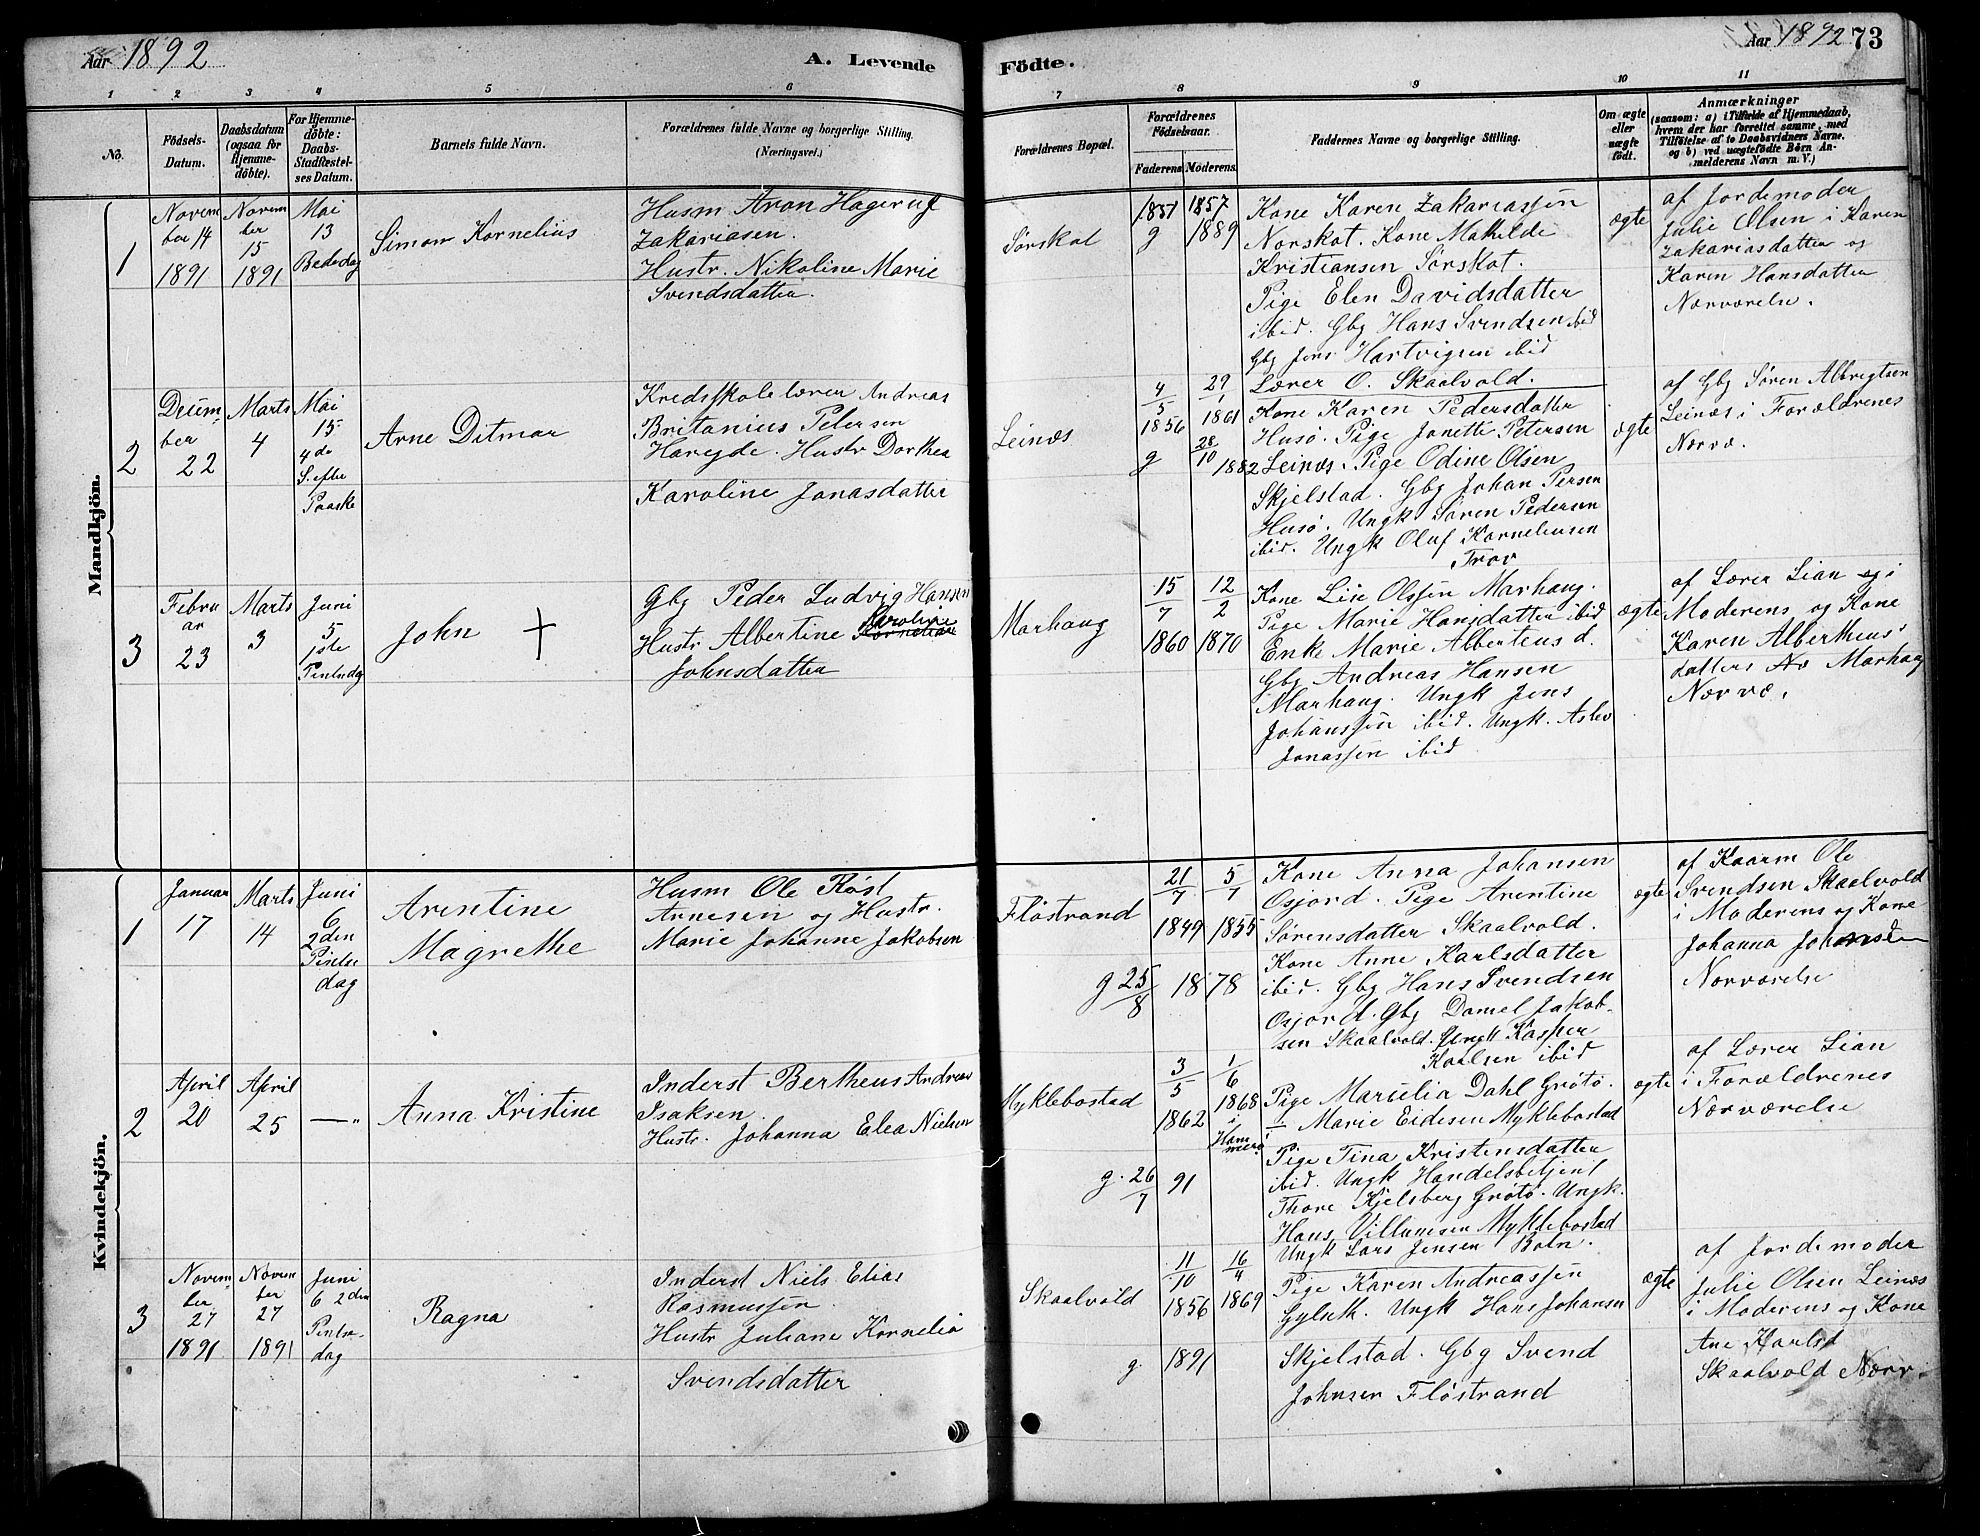 Aar 1892
A. Levende
Födte.
Aar 1892 73
1 2 3 4 5 6 7 8 9 10 11
No.
Födsels-
Datum.
Daabsdatum
(ogsaa for
Hjemme-
döbte).
For Hjemme-
döbte:
Daabs-
Stadfæstel-
ses Datum.
Barnets fulde Navn.
Forældrenes fulde Navne og borgerlige Stilling.
(Næringsvei.)
Forældrenes Bopæl.
Forældrenes
Födselsaar.
Faderens. Moderens.
Faddernes Navne og borgerlige Stilling.
Om ægte
eller
uægte
født.
Anmærkninger
(saasom: a) i Tilfælde af Hjemmedaab,
hvem der har forrettet samme, med
Tilföielse af to Daabsvidners Navne.
og b) ved uægtefödte Börn An-
melderens Navn m. V.)
Mandkjön.
1
Novem
ber 14
1891
Novem
ber
15
1891
Mai
13
Bededag
Simon Kornelius
Husm Aron Hagerup
Zakariasen.
Hustr. Nikoline Marie
Svendsdatter.
Sørskot
1851 1857
g 1889
Kone Karen Zakariassen
Norskot. Kone Mathilde
Kristiansen Sørskot.
Pige Elen Davidsdatter
ibid. Gbg Hans Svendsen ibid
Gbg Jens Hartvigsen ibid
ægte
af Jordemoder
Julie Olsen i Karen
Zakariasdatter og
Karen Hansdatter
Nærværelse.
2
Decem
ber
22
Marts
4
Mai
15
4de
S. efter
Paaske
Arne Ditmar
Kredsskolelærer Andreas
Britanius Petersen
Hustr Dorthea
Karoline Jonasdatter
Leinæs
4 29
5 1
1856 1861
g 28
10 1882
Lærer O. Skaalvold.
Kone Karen Pedersdatter
Husø. Pige Janette Petersen
Leinæs. Pige Odine Olsen
Skjelstad. Gbg Johan Persen
Husø. Ungk Søren Pedersen
ibid. Ungk Oluf Korneliusen
Trov
ægte
af Gbg Søren Albrigtsen
Leinæs i Forældrenes
Nærvæ.
3
Febru
ar
23
Marts
3
Juni
5
1ste
Pintsedag
John +
Gbg Peder Ludvig Hansen
Karoline
Hustr Albertine
Johnsdatter
Marhaug
15 12
7 2
1860 1870
Kone Line Olssen Marhaug.
Pige Marie Hansdatter ibid
Enke Marie Albertius d.
Gbg Andreas Hansen
Marhaug. Ungk Jens
Johanssen ibid. Ungk. Aslev
Jonassen ibid
ægte
af Lærer Lian i
Moderens og Kone
Karen Albertheus-
datters Marhaug
Nærvæ.
Kvindekjön.
1
Januar
17
Marts
14
Juni
6
2den
Pintse
dag
Arentine
Magrethe
Husm Ole Røst
Arnesen og Hustr.
Marie Johanne Jakobsen
Fløstrand
21 5
7 7
1849 1855
g 25
8 1878
Kone Anna Johansen
Osjord. Pige Arentine
Sørensdatter Skaalvold.
Kone Anne Karlsdatter
ibid. Gbg Hans Svendsen
Osjord. Gbg Daniel Jakob-
sen Skaalvold. Ungk Kasper
Kaalsen ibid
ægte
af Kaarm Ole
Svendsen Skaalvold
i Moderens og Kone
Johanna Johansen
Nærværelse
2
April
20
April
25
—"
Anna Kristine
Inderst Bertheus Andreas
Isaksen.
Hustr. Johanna Elea Nielsen
Myklebostad
3 1
5 6
1862 1868
i
Ham
merø
g. 26
7 91
Pige Marselia Dahl Grøtø.
Marie Eidesen Myklebostad
Pige Tina Kristensdatter
ibid. Ungk Handelsbetjent
Thore Kjelsberg Grøtø. Ungk.
Hans Villumsen Myklebostad
Ungk Lars Jensen Boln.
ægte
af Lærer Lian
i Forældrenes
Nærværelse
3
Novem
ber
27
1891
Novem
ber
27
1891
Juni
6 2den
Pintse-
dag
Ragna
Inderst Niels Elias
Rasmussen.
Hustr Juliane Kornelia
Svendsdatter
Skaalvold
11 16
10 4
1856 1869
g. 1891
Pige Karen Andreassen
Ungk Hans Johansen
Skjelstad. Gbg Svend
Johnsen Fløstrand
ægte
af Jordemoder
Julie Olsen Leinæs
i Moderens og Kone
Ane Karlsd
Skaalvold Nærv.